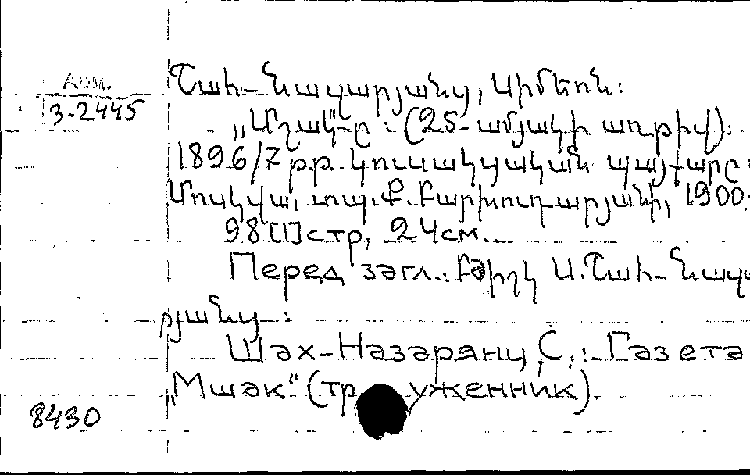 Арм.
3-2445
Շահ-Նազարյանց, Սիմեոն:
„Մշակ"-ը: (25-ամյակի առթիվ):
1896/7 թ.թ. կուսակցական պայքարը:
Մոսկվա, տպ. Ք. Բարխուդարյանի, 1900.
98 [1] стр, 24см.
Перед загл.: Բժիշկ Ս. Շահ-Նազա
րյանց:
Шах-Назарянц, С.: Газета
„Мшак" (тр уженник).
8430